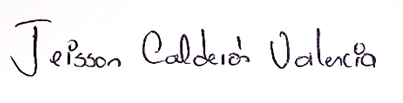 Jeisson Calderón Valencia